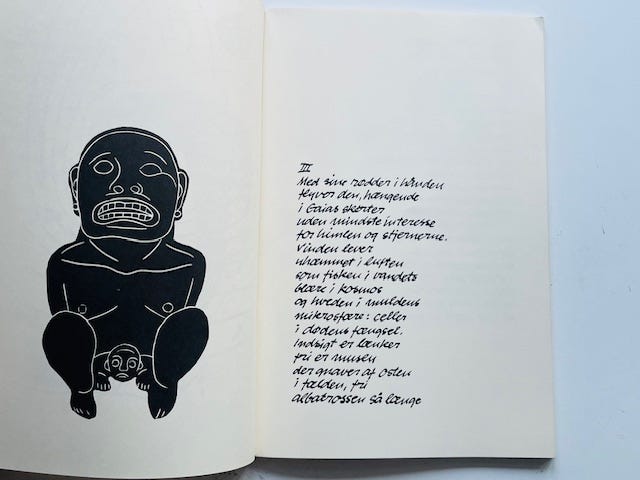 III
Med sine rødder i hånden
flyver den, hængende
i Gaias skørter
uden mindste interesse
for himlen og stjernerne.
Vinden lever
uhæmmet i luften
som fisken i vandets
blære i kosmos
og hveden i muldens
mikrosfære: celler
i dødens fængsel.
Indsigt er lænker
fri er musen
der gnaver af osten
i fælden, fri
albatrossen så længe